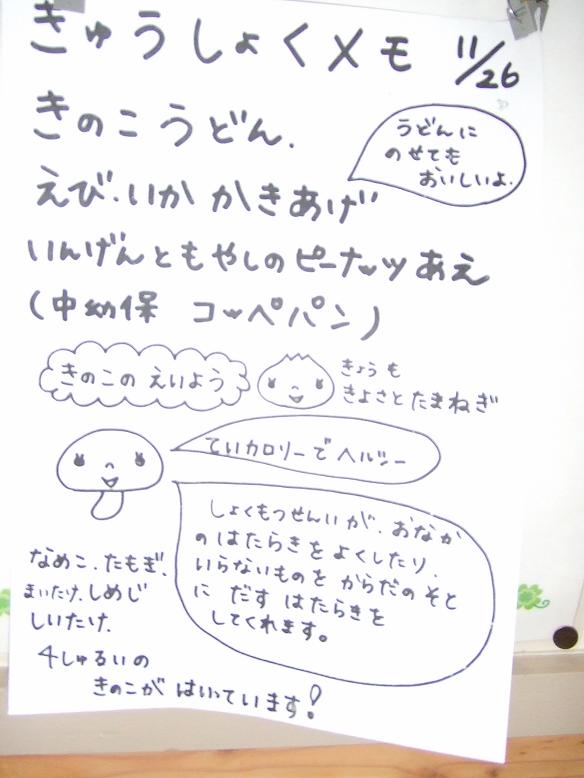 きゅうしょくメモ 11/26
きのこうどん.
うどんに
のせても
おいしいよ.
えび.いか かきあげ
いんげんともやしのピーナッツあえ
(中幼保 コッペパン)
きのこの えいよう
きょうも
きよさとたまねぎ
ていカロリーでヘルシー
しょくもつせんいが.おなか
のはたらきをよくしたり.
いらないものを からだのそと
に だす はたらきを
してくれます。
なめこ.たもぎ.
まいたけ.しめじ
しいたけ.
4しゅるいの
きのこが はいています!